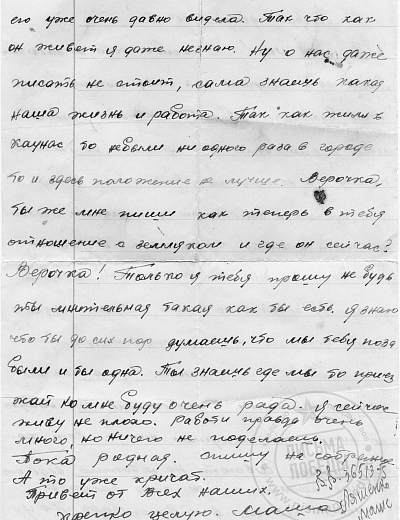 его уже очень давно видела. Так что как
он живет я даже незнаю. Ну о нас даже
писать не стоит, сама знаешь какая
наша жизнь и работа. Так как жили в
Каунас то небыли ни одного раза в городе
то и здесь положение не лучше. Верочка,
ты же мне пиши как теперь в тебя
отношение с земляком и где он сейчас?
Верочка! Только я тебя прошу не будь
ты мнительная такая как ты есть. Я знаю
что ты до сих пор думаешь, что мы тебя поза
были и ты одна. Ты знаешь где мы то приез
жай ко мне буду очень рада. Я сейчас
живу не плохо. Работи правда очень
много, но ничего не поделаешь.
Пока родная. спишу на собрание
А то уже кричат.
Привет от всех наших.
Крепко целую. Маша